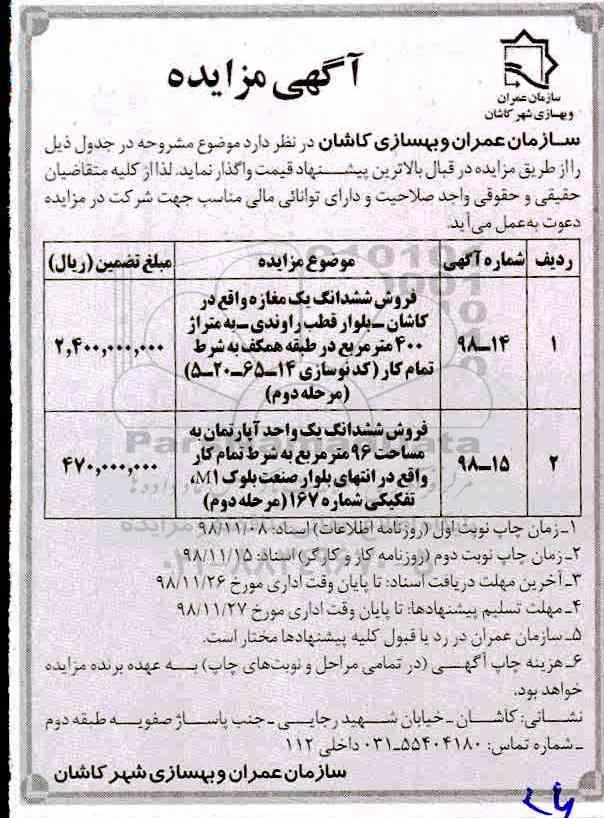 سازمان عمران
و بهسازی شهر کاشان
آگهی مزایده
سازمان عمران و بهسازی کاشان در نظر دارد موضوع مشروحه در جدول ذیل
را از طریق مزایده در قبال بالاترین پیشنهاد قیمت واگذار نماید. لذا از کلیه متقاضیان
حقیقی و حقوقی واجد صلاحیت و دارای توانائی مالی مناسب جهت شرکت در مزایده
دعوت به‌عمل می‌آید.
ردیف شماره آگهی موضوع مزایده مبلغ تضمین (ریال)
۱ ۱۴ـ۹۸ فروش ششدانگ یک مغازه واقع در
کاشان ـ بلوار قطب راوندی ـ به متراژ
۴۰۰ مترمربع در طبقه همکف به شرط
تمام کار (کد نوسازی ۱۴ـ۶۵ـ۲۰ـ۵)
(مرحله دوم) ۲,۴۰۰,۰۰۰,۰۰۰
۲ ۱۵ـ۹۸ فروش ششدانگ یک واحد آپارتمان به
مساحت ۹۶ مترمربع به شرط تمام کار
واقع در انتهای بلوار صنعت بلوک M۱،
تفکیکی شماره ۱۶۷ (مرحله دوم) ۴۷۰,۰۰۰,۰۰۰
۱ـ زمان چاپ نوبت اول (روزنامه اطلاعات) اسناد: ۹۸/۱۱/۰۸
۲ـ زمان چاپ نوبت دوم (روزنامه کار و کارگر) اسناد: ۹۸/۱۱/۱۵
۳ـ آخرین مهلت دریافت اسناد: تا پایان وقت اداری مورخ ۹۸/۱۱/۲۶
۴ـ مهلت تسلیم پیشنهادها: تا پایان وقت اداری مورخ ۹۸/۱۱/۲۷
۵ـ سازمان عمران در رد یا قبول کلیه پیشنهادها مختار است.
۶ـ هزینه چاپ آگهی (در تمامی مراحل و نوبت‌های چاپ) به عهده برنده مزایده
خواهد بود.
نشانی: کاشان ـ خیابان شهید رجایی ـ جنب پاساژ صفویه طبقه دوم
ـ شماره تماس: ۵۵۴۰۴۱۸۰ـ۰۳۱ داخلی ۱۱۲
سازمان عمران و بهسازی شهر کاشان